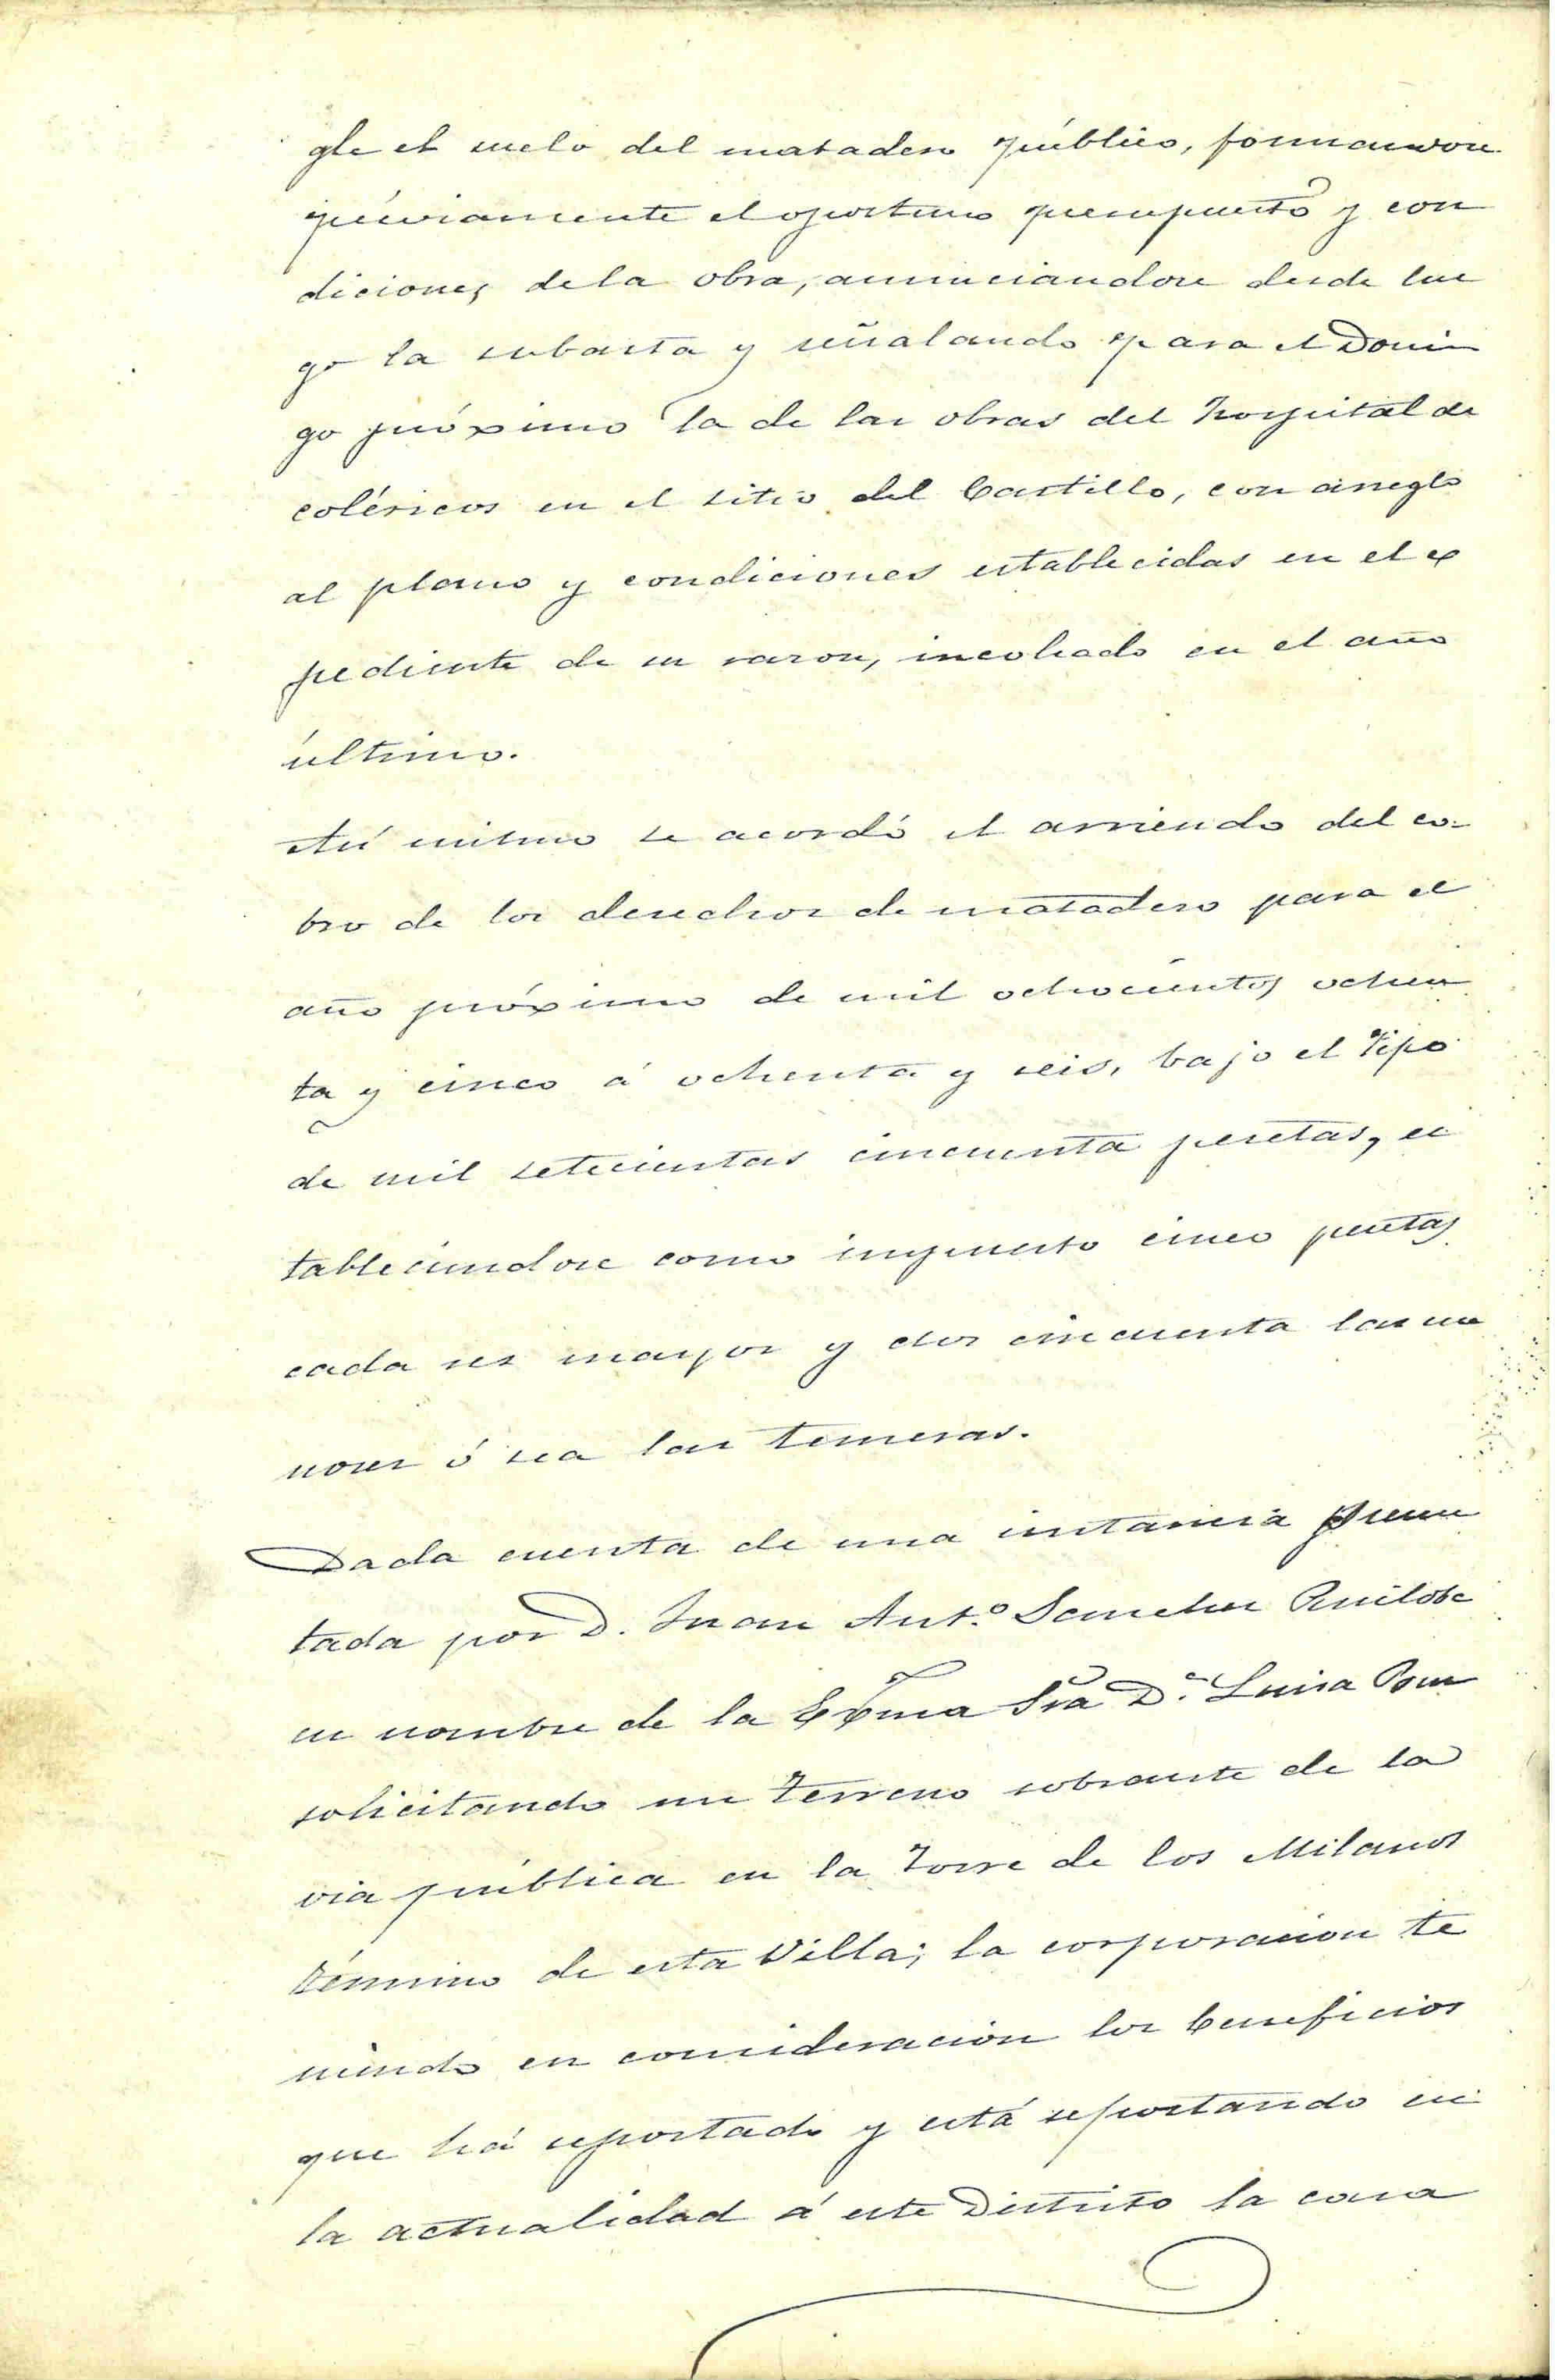 gle el suelo del matadero público, formandose
préviamente el oportuno presupuesto y con
diciones de la obra, anunciandose desde lue
go la subasta y señalando para el Domin
go próximo la de las obras del hospital de
coléricos en el sitio del Castillo, con arreglo
al plano y condiciones establecidas en el ex
pediente de su razon, incohado en el año
último.
Así mismo se acordó el arriendo del co-
bro de los derechos de matadero para el
año próximo de mil ochocientos ochen
ta y cinco á ochenta y seis, bajo el tipo
de mil setecientas cincuenta pesetas, es
tableciendose como impuesto cinco pesetas
cada res mayor y dos cincuenta las me
nores ó sea las terneras.
Dada cuenta de una instancia presen
tada por D. Juan Ant.º Sanchez Ruilobe
en nombre de la Excma Sra D.ª Luisa Bru
solicitando un terreno sobrante de la
via pública en la Torre de los Milanos
término de esta Villa; la corporacion te
niendo en consideracion los beneficios
que há reportado y está reportando en
la actualidad á este Distrito la casa